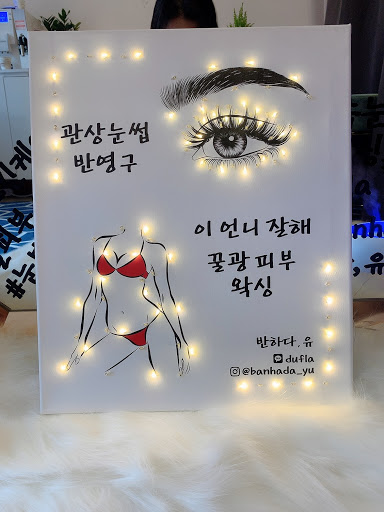 관상눈썹
반영구
이 언니 잘해
꿀광 피부
왁싱
반하다. 유
dufla
@banhada_yu